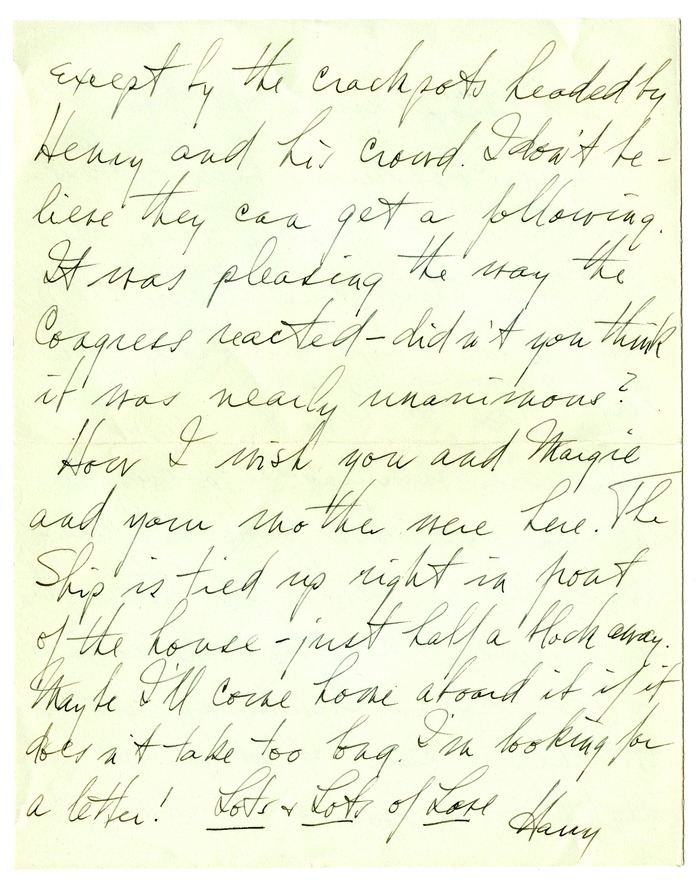 except by the crackpots headed by
Henry and his crowd. I don't be-
lieve they can get a following.
It was pleasing the way the
Congress reacted - didn't you think
it was nearly unanimous?
How I wish you and Margie
and your mother were here. The
Ship is tied up right in front
of the house - just half a block away.
Maybe I'll come home aboard it if it
doesn't take too long. I'm looking for
a letter! Lots & Lots of Love Harry